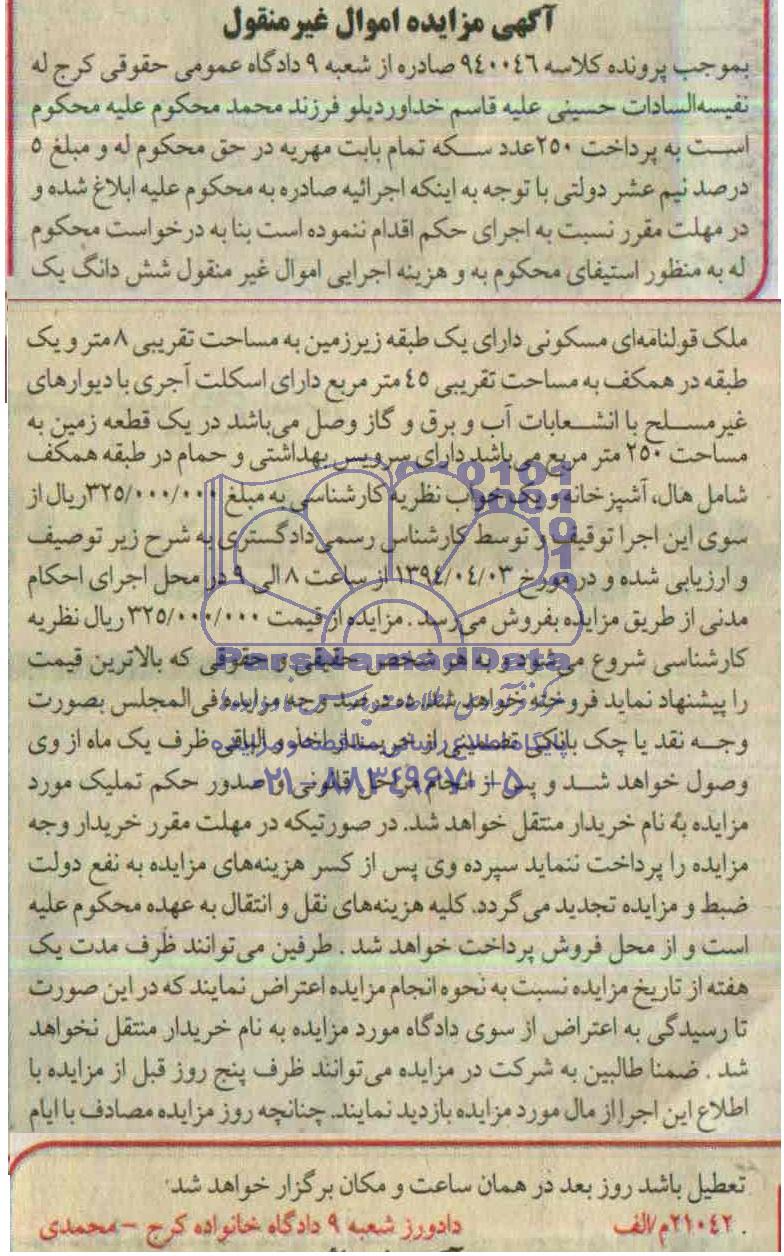 آگهی مزایده اموال غیرمنقول
بموجب پرونده کلاسه ٩٤٠٠٤٦ صادره از شعبه ٩ دادگاه عمومی حقوقی کرج له
نفیسه‌السادات حسینی علیه قاسم خداوردیلو فرزند محمد محکوم علیه محکوم
است به پرداخت ٢٥٠عدد سکه تمام بابت مهریه در حق محکوم له و مبلغ ٥
درصد نیم عشر دولتی با توجه به اینکه اجرائیه صادره به محکوم علیه ابلاغ شده و
در مهلت مقرر نسبت به اجرای حکم اقدام ننموده است بنا به درخواست محکوم
له به منظور استیفای محکوم به و هزینه اجرایی اموال غیر منقول شش دانگ یک
ملک قولنامه‌ای مسکونی دارای یک طبقه زیرزمین به مساحت تقریبی ٨متر و یک
طبقه در همکف به مساحت تقریبی ٤٥ متر مربع دارای اسکلت آجری با دیوارهای
غیرمسلح با انشعابات آب و برق و گاز وصل می‌باشد در یک قطعه زمین به
مساحت ٢٥٠ متر مربع می‌باشد دارای سرویس بهداشتی و حمام در طبقه همکف
شامل هال، آشپزخانه و یک خواب نظریه کارشناسی به مبلغ ٣٢٥/٠٠٠/٠٠٠ریال از
سوی این اجرا توقیف و توسط کارشناس رسمی دادگستری به شرح زیر توصیف
و ارزیابی شده و در مورخ ١٣٩٤/٠٤/٠٣ از ساعت ٨ الی ٩ در محل اجرای احکام
مدنی از طریق مزایده بفروش می‌رسد . مزایده از قیمت ٣٢٥/٠٠٠/٠٠٠ ریال نظریه
کارشناسی شروع می‌شود و به هر شخص حقیقی و حقوقی که بالاترین قیمت
ParsNamadData
را پیشنهاد نماید فروخته خواهد شد. ده درصد وجه مزایده فی‌المجلس بصورت
وجه نقد یا چک بانکی تضمینی از خریدار اخذ و الباقی ظرف یک ماه از وی
وصول خواهد شد و پس از انجام مراحل قانونی و صدور حکم تملیک مورد
٠٢١-٨٨٣٤٩٦٧٠-٥
مزایده به نام خریدار منتقل خواهد شد. در صورتیکه در مهلت مقرر خریدار وجه
مزایده را پرداخت ننماید سپرده وی پس از کسر هزینه‌های مزایده به نفع دولت
ضبط و مزایده تجدید می‌گردد. کلیه هزینه‌های نقل و انتقال به عهده محکوم علیه
است و از محل فروش پرداخت خواهد شد . طرفین می‌توانند ظرف مدت یک
هفته از تاریخ مزایده نسبت به نحوه انجام مزایده اعتراض نمایند که در این صورت
تا رسیدگی به اعتراض از سوی دادگاه مورد مزایده به نام خریدار منتقل نخواهد
شد . ضمنا طالبین به شرکت در مزایده می‌توانند ظرف پنج روز قبل از مزایده با
اطلاع این اجرا از مال مورد مزایده بازدید نمایند. چنانچه روز مزایده مصادف با ایام
تعطیل باشد روز بعد در همان ساعت و مکان برگزار خواهد شد
. ٢١٠٤٢م/الف دادورز شعبه ٩ دادگاه خانواده کرج – محمدی